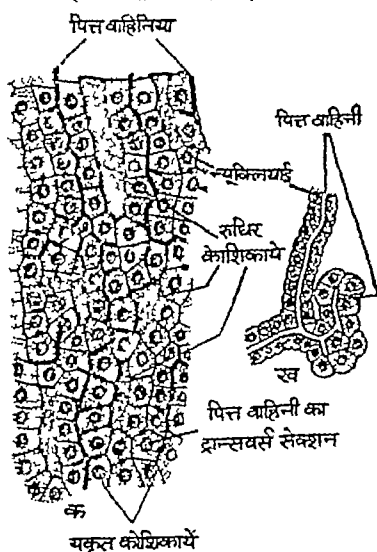 पित्त वाहिनिया
पित्त वाहिनी
न्यूक्लियाई
रुधिर
केाशिकाये
ख
पित्त वाहिनी का
ट्रान्सवर्स सेक्शन
क
यकृत कोशिकायें